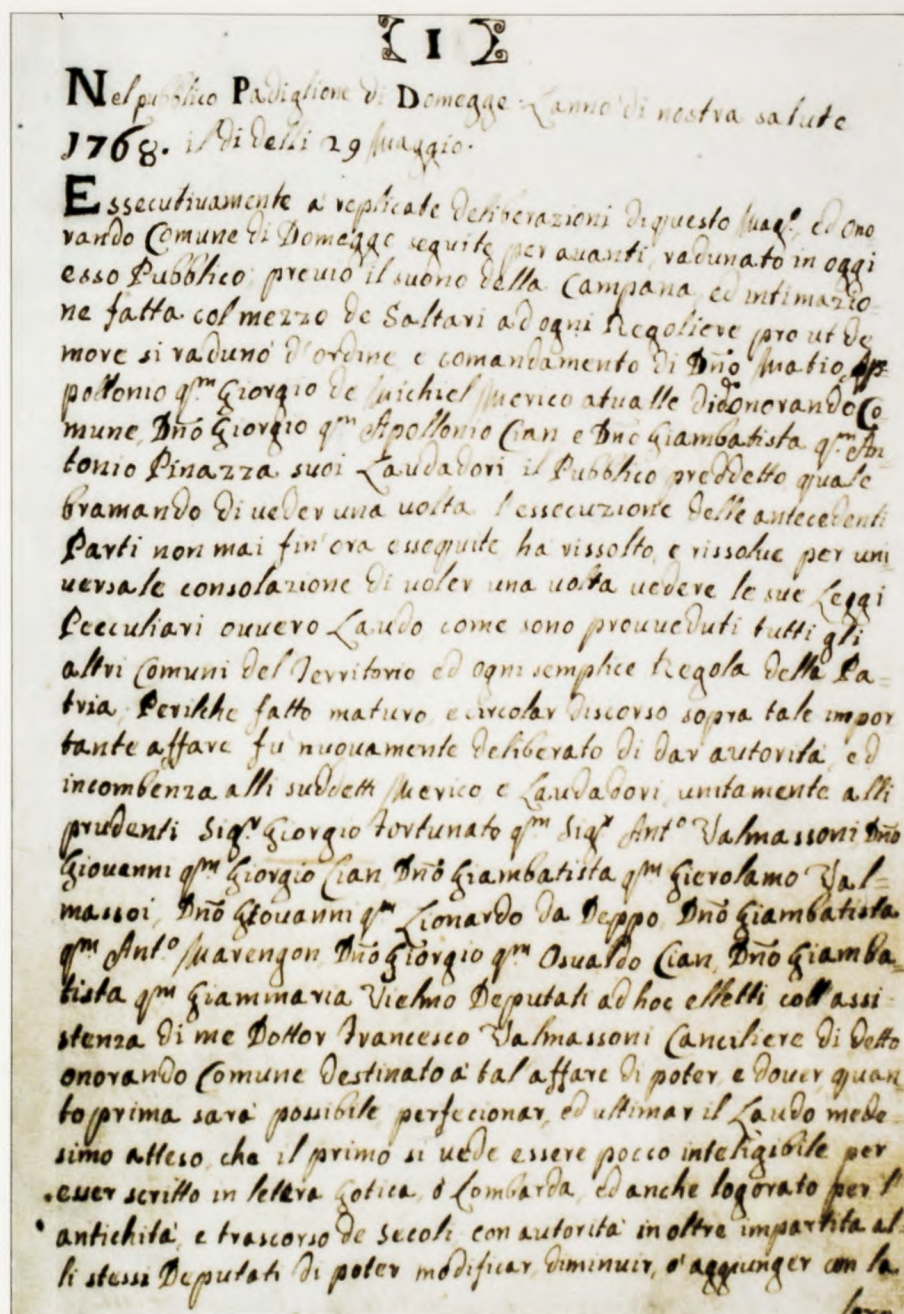 I
Nel pubblico Padiglione di Domegge L'anno di nostra salute
1768. il di delli 29 Maggio.
Essecutivamente a replicate deliberazioni di questo Mag.º, ed Ono
rando Comune di Domegge seguite per avanti, radunato in oggi
esso Pubblico, previo il suono della Campana, ed intimazio=
ne fatta col mezzo de Saltari ad ogni Regoliere pro ut de
more si radunò d'ordine e comandamento di Dño Matio Ap=
pollonio qm Giorgio de Michiel Merico atualle di d.º onorando Co
mune, Dño Giorgio qm Apollonio Cian e Dño Giambatista qm An
tonio Pinazza suoi Laudadori il Pubblico preddetto quale
bramando di veder una volta l'essecuzione delle antecedenti
Parti non mai fin'ora essequite ha rissolto, e rissolve per uni
versale consolazione di voler una volta vedere le sue Leggi
Peculiari ovvero Laudo come sono provveduti tutti gli
altri Comuni del Territorio ed ogni semplice Regola della Pa=
tria, Perilche fatto maturo, e circolar discorso sopra tale impor
tante affare fu nuovamente deliberato di dar autorità, ed
incombenza alli suddetti Merico e Laudadori, unitamente alli
prudenti Sigr Giorgio Fortunato qm Sigr Ant.º Valmassoni Dño
Giovanni qm Giorgio Cian, Dño Giambatista qm Gierolamo Val=
massoi, Dño Giovanni qm Lionardo da Deppo, Dño Giambatista
qm Ant.º Marengon Dño Giorgio qm Osvaldo Cian, Dño Giamba=
tista qm Giammaria Vielmo Deputati ad hoc elletti coll'assi
stenza di me Dottor Francesco Valmassoni Canciliere di detto
onorando Comune destinato à tal affare di poter, e dover, quan
to prima sarà possibile perfecionar, ed ultimar il Laudo mede=
simo atteso, che il primo si vede essere pocco inteligibile per
esser scritto in letera Gotica, ò Lombarda, ed anche logorato per l'
antichità, e trascorso de secoli con autorità inoltre impartita al=
li stessi Deputati di poter modificar, diminuir, ò aggiunger con la
loro